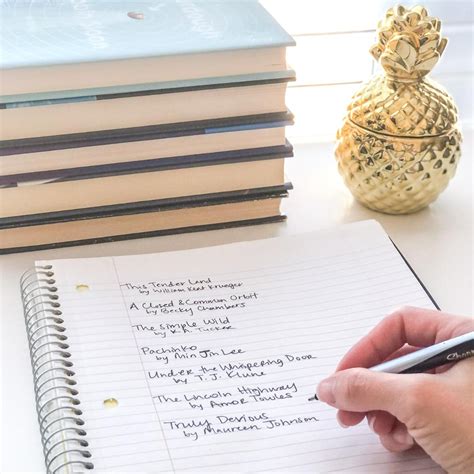 This Tender Land
by William Kent Krueger
A Closed & Common Orbit
by Becky Chambers
The Simple Wild
by K.A. Tucker
Pachinko
by Min Jin Lee
Under the Whispering Door
by T.J. Klune
The Lincoln Highway
by Amor Towles
Truly Devious
by Maureen Johnson